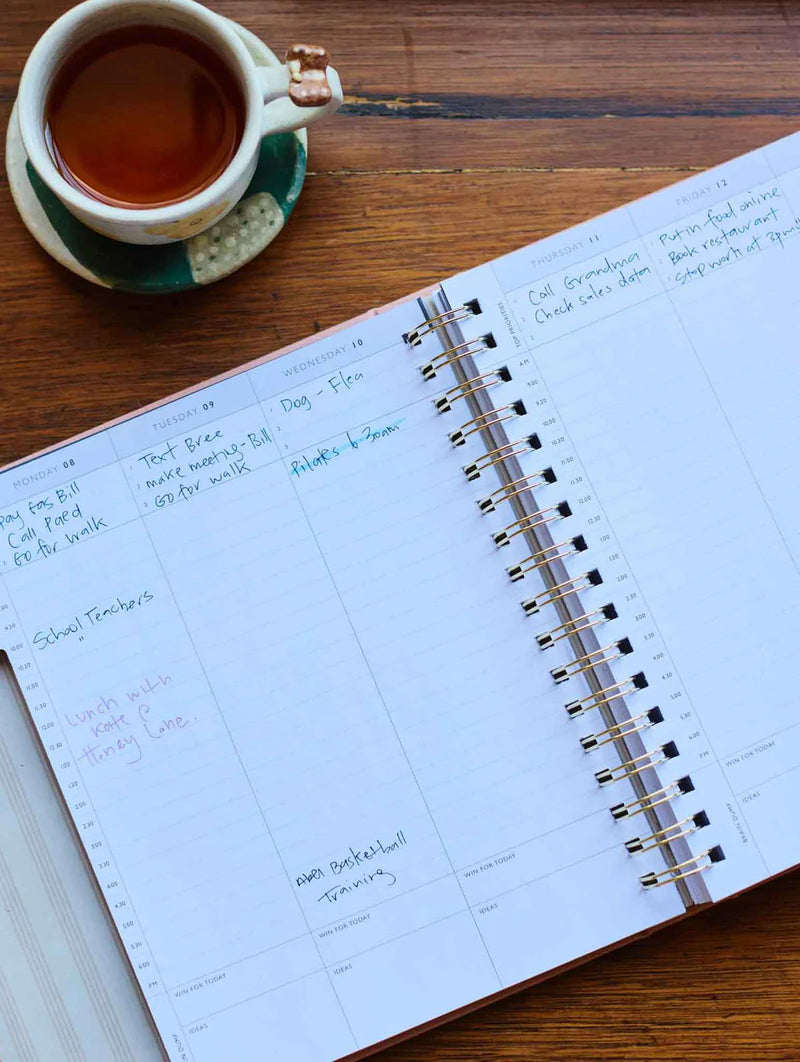 MONDAY 08
pay gas Bill
Call Paed
Go for walk
School Teachers
"
Lunch with
Kate @
Honey Lane.
WIN FOR TODAY
IDEAS
BRAIN DUMP
TUESDAY 09
Text Bree
make meeting-Bill
Go for walk
Abel Basketball
Training
WIN FOR TODAY
IDEAS
WEDNESDAY 10
Dog - Flea
Pilates 6.30am
WIN FOR TODAY
IDEAS
THURSDAY 11
TOP PRIORITIES
Call Grandma
Check sales data
AM
9.00
9.30
10.00
10.30
11.00
11.30
12.00
12.30
1.00
1.30
2.00
2.30
3.00
3.30
4.00
4.30
5.00
5.30
6.00
PM
WIN FOR TODAY
IDEAS
BRAIN DUMP
FRIDAY 12
Put in food online
Book restaurant
Stop work at 3pm!!